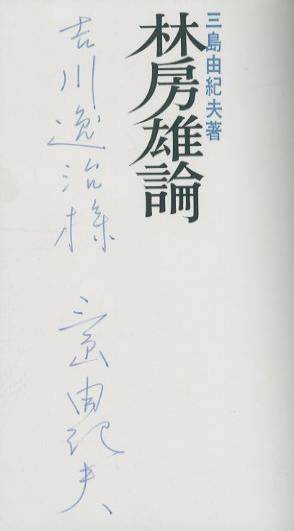 三島由紀夫著
林房雄論
吉川逸治様
三島由紀夫